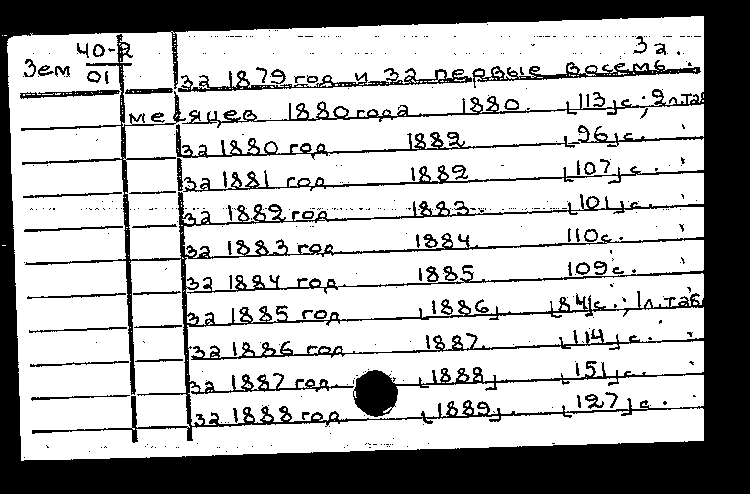 3а.
Зем 40-2
01
за 1879 год и за первые восемь
месяцев 1880 года 1880. [113] с.; 2 л. таб
за 1880 год 1882. [96] с.
за 1881 год 1882 [107] с.
за 1882 год 1883. [101] с.
за 1883 год 1884. 110 с.
за 1884 год. 1885 109 с.
за 1885 год [1886]. [84] с.; 1 л. табл
за 1886 год 1887. [114] с.
за 1887 год. [1888] [151] с.
за 1888 год [1889]. [127] с.